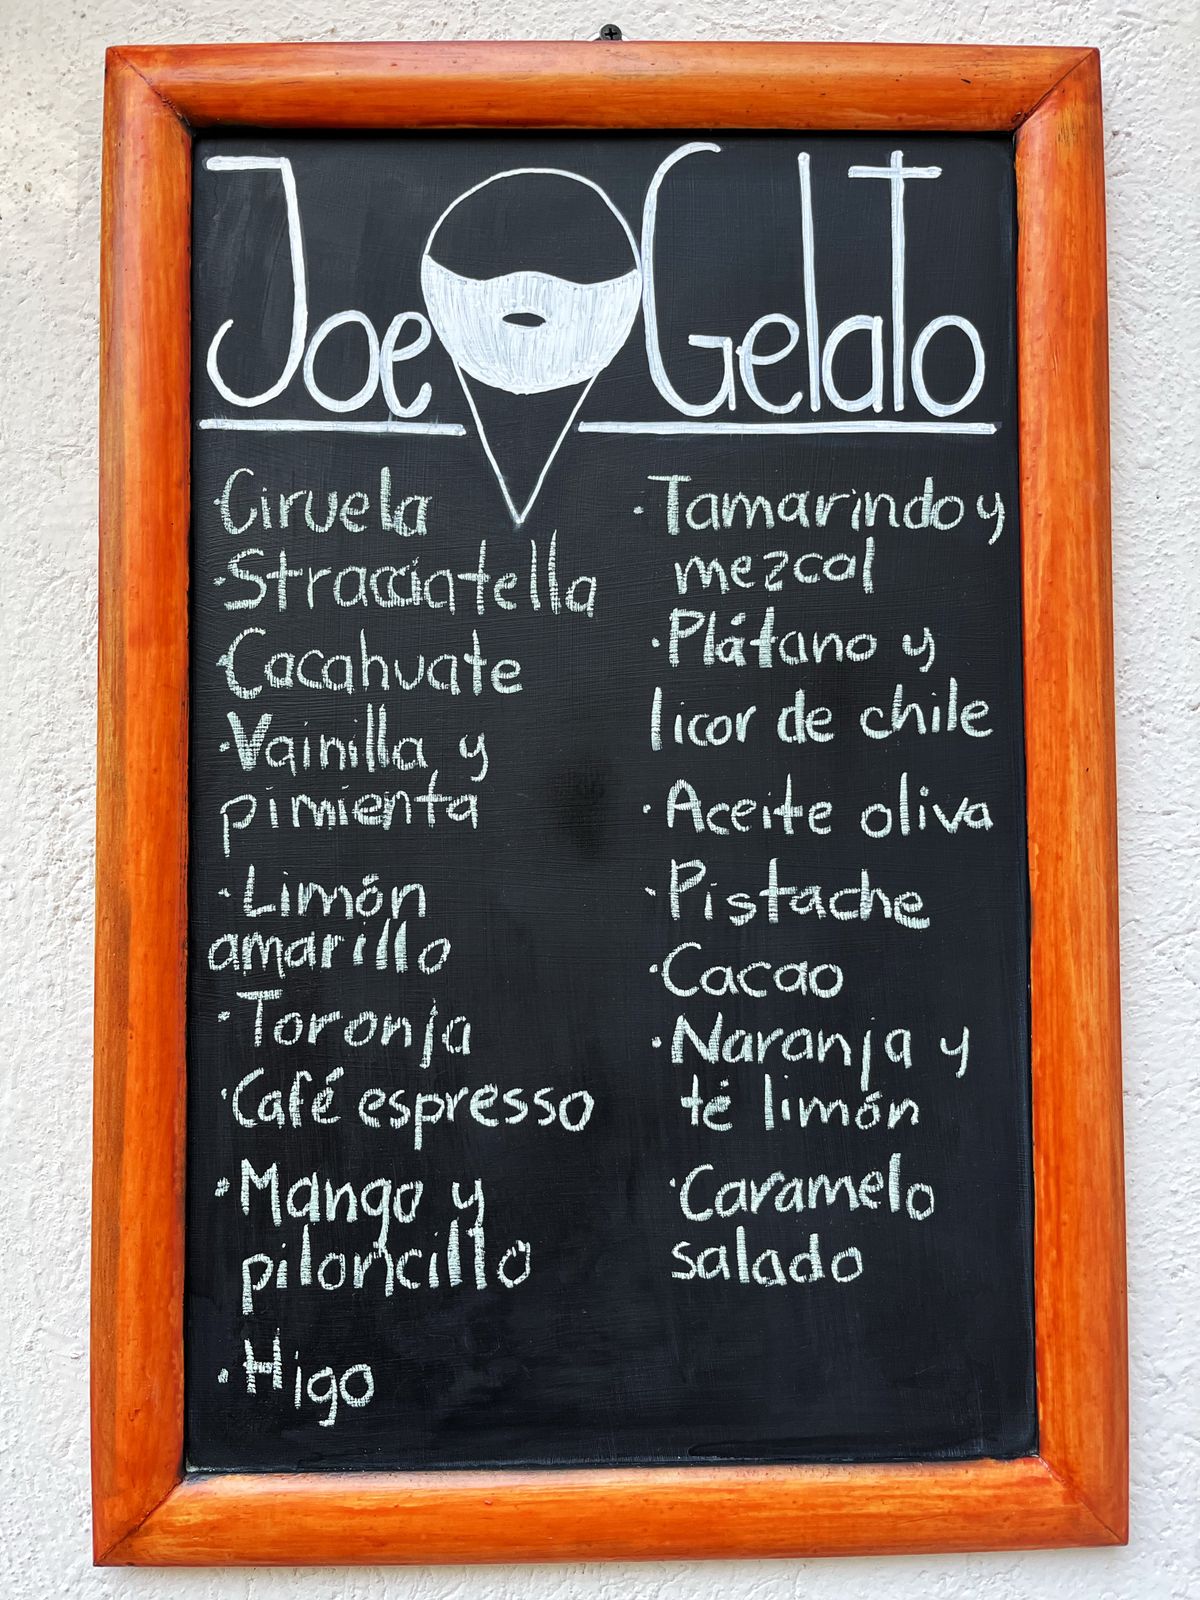 Joe Gelato
·Ciruela
·Stracciatella
·Cacahuate
·Vainilla y
pimienta
·Limón
amarillo
·Toronja
·Café espresso
·Mango y
piloncillo
·Higo
·Tamarindo y
mezcal
·Plátano y
licor de chile
·Aceite oliva
·Pistache
·Cacao
·Naranja y
té limón
·Caramelo
salado